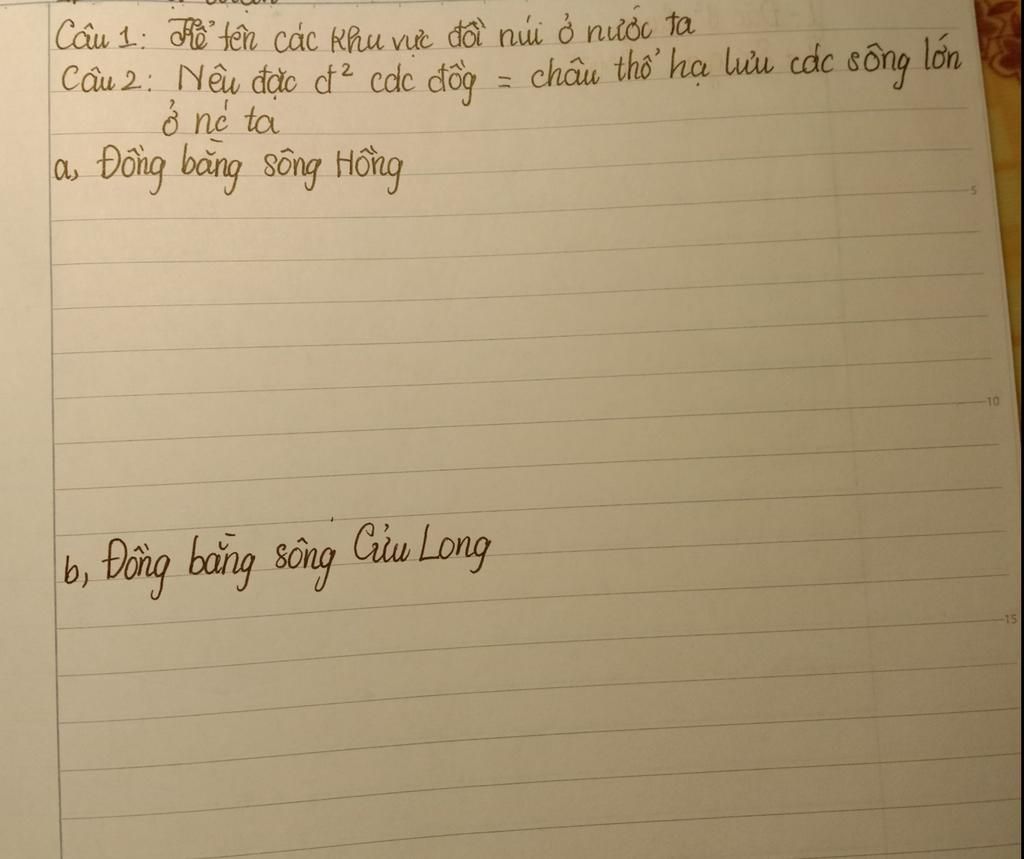 Câu 1: Kể tên các khu vực đồi núi ở nước ta
Câu 2: Nêu đặc đ² các đồg = châu thổ hạ lưu các sông lớn
ở nć ta
a, Đồng bằng sông Hồng
5
10
b, Đồng bằng sông Cửu Long
15